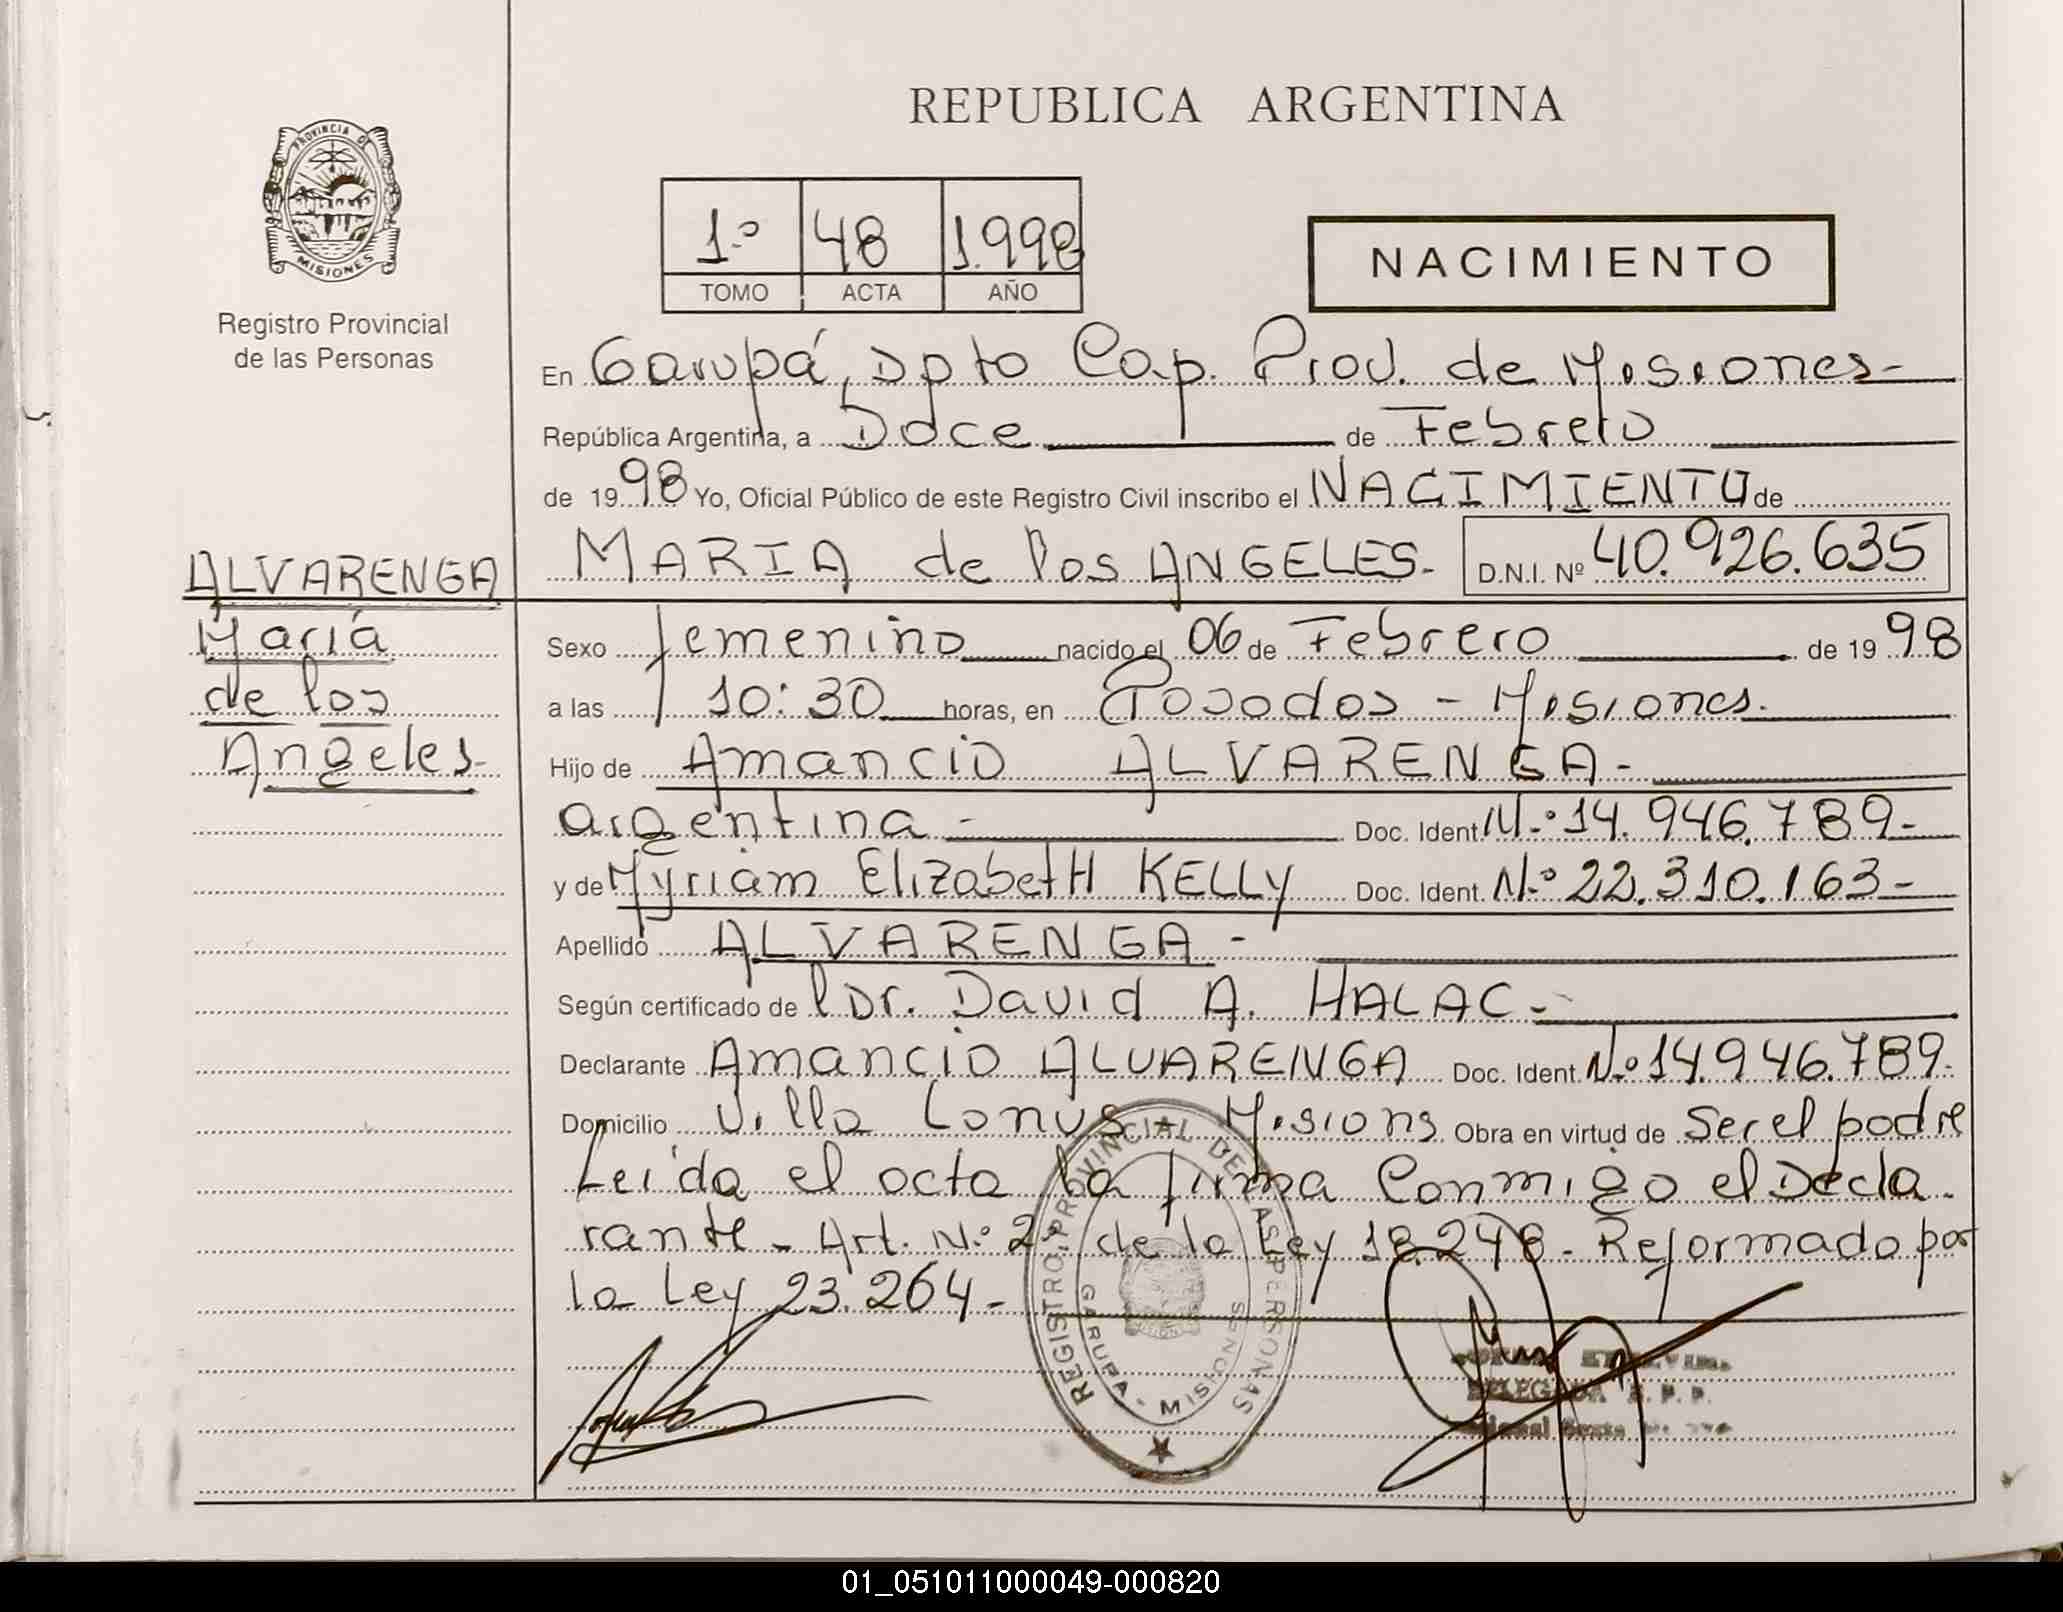 REPUBLICA ARGENTINA
PROVINCIA DE
MISIONES
Registro Provincial
de las Personas
1.º 48 1.998
TOMO ACTA AÑO
NACIMIENTO
En Garupá, Dpto Cap. Prov. de Misiones-
República Argentina, a Doce de Febrero
de 1998 Yo, Oficial Público de este Registro Civil inscribo el NACIMIENTO de
MARIA de los ANGELES- D.N.I. Nº 40.926.635
ALVARENGA
María
de los
Angeles-
Sexo femenino nacido el 06 de Febrero de 1998
a las 10:30 horas, en Posadas - Misiones.
Hijo de Amancio ALVARENGA-
argentina - Doc. Ident. N.º 14.946.789-
y de Myriam ElizabetH KELLy Doc. Ident. N.º 22.310.163-
Apellido ALVARENGA -
Según certificado de l Dr. David A. HALAC-
Declarante Amancio ALVARENGA Doc. Ident. N.º 14.946.789-
Domicilio Villa Lonus - Misions Obra en virtud de Ser el padre
Leída el acta la firma Conmigo el Decla-
rante - Art. N.º 2º de la Ley 18.248- Reformado por
la Ley 23.264-
REGISTRO PROVINCIAL DE LAS PERSONAS
GARUPA - MISIONES
DELEGADA
01_051011000049-000820